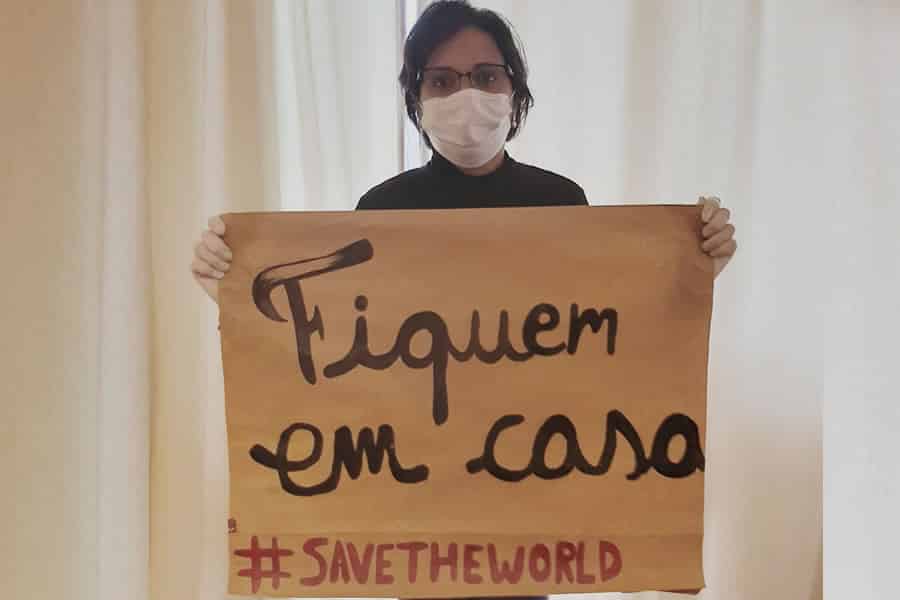 Fiquem
em casa
#SAVETHEWORLD